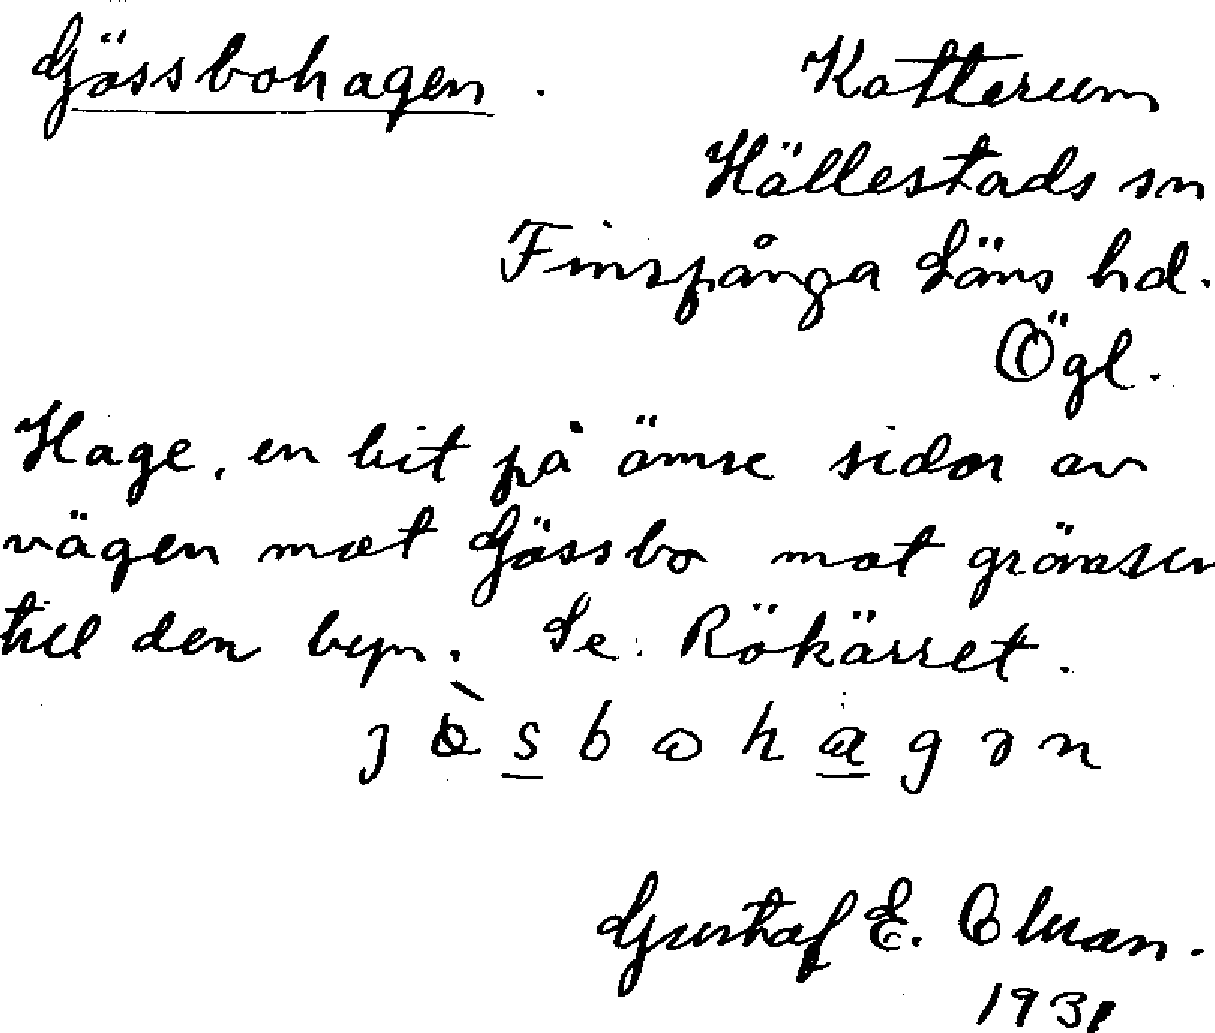 Gössbohagen. Katterum
Hällestads sn
Finspånga Läns hd.
Ögl.
Hage, en bit på ömse sidor av
vägen mot Gössbo mot gränsen
till den byn. Se: Rökärret.
Gustaf E.
1931